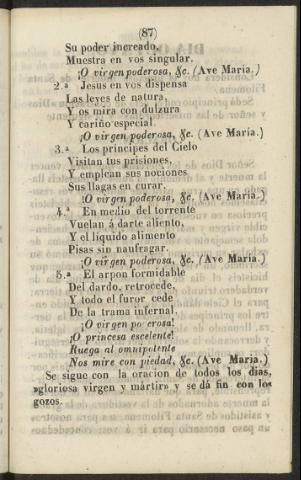 (87)
Su poder increado,
Muestra en vos singular.
¡O virgen poderosa, &c. (Ave Maria.)
2.ª Jesus en vos dispensa
Las leyes de natura,
Y os mira con dulzura
Y cariño especial.
¡O virgen poderosa, &c. (Ave Maria.)
3.ª Los principes del Cielo
Visitan tus prisiones,
Y emplean sus nociones
Sus llagas en curar.
¡O virgen poderosa, &c. (Ave Maria.)
4.ª En medio del torrente
Vuelan á darte aliento,
Y el líquido alimento
Pisas sin naufragar.
¡O vírgen poderosa, &c. (Ave Maria.)
5.ª El arpon formidable
Del dardo, retrocede,
Y todo el furor cede
De la trama infernal,
¡O virgen poderosa!
¡O princesa escelente!
Ruega al omnipotente
Nos mire con piedad, &c. (Ave Maria.)
Se sigue con la oracion de todos los dias,
»gloriosa virgen y mártir» y se dá fin con los
gozos.